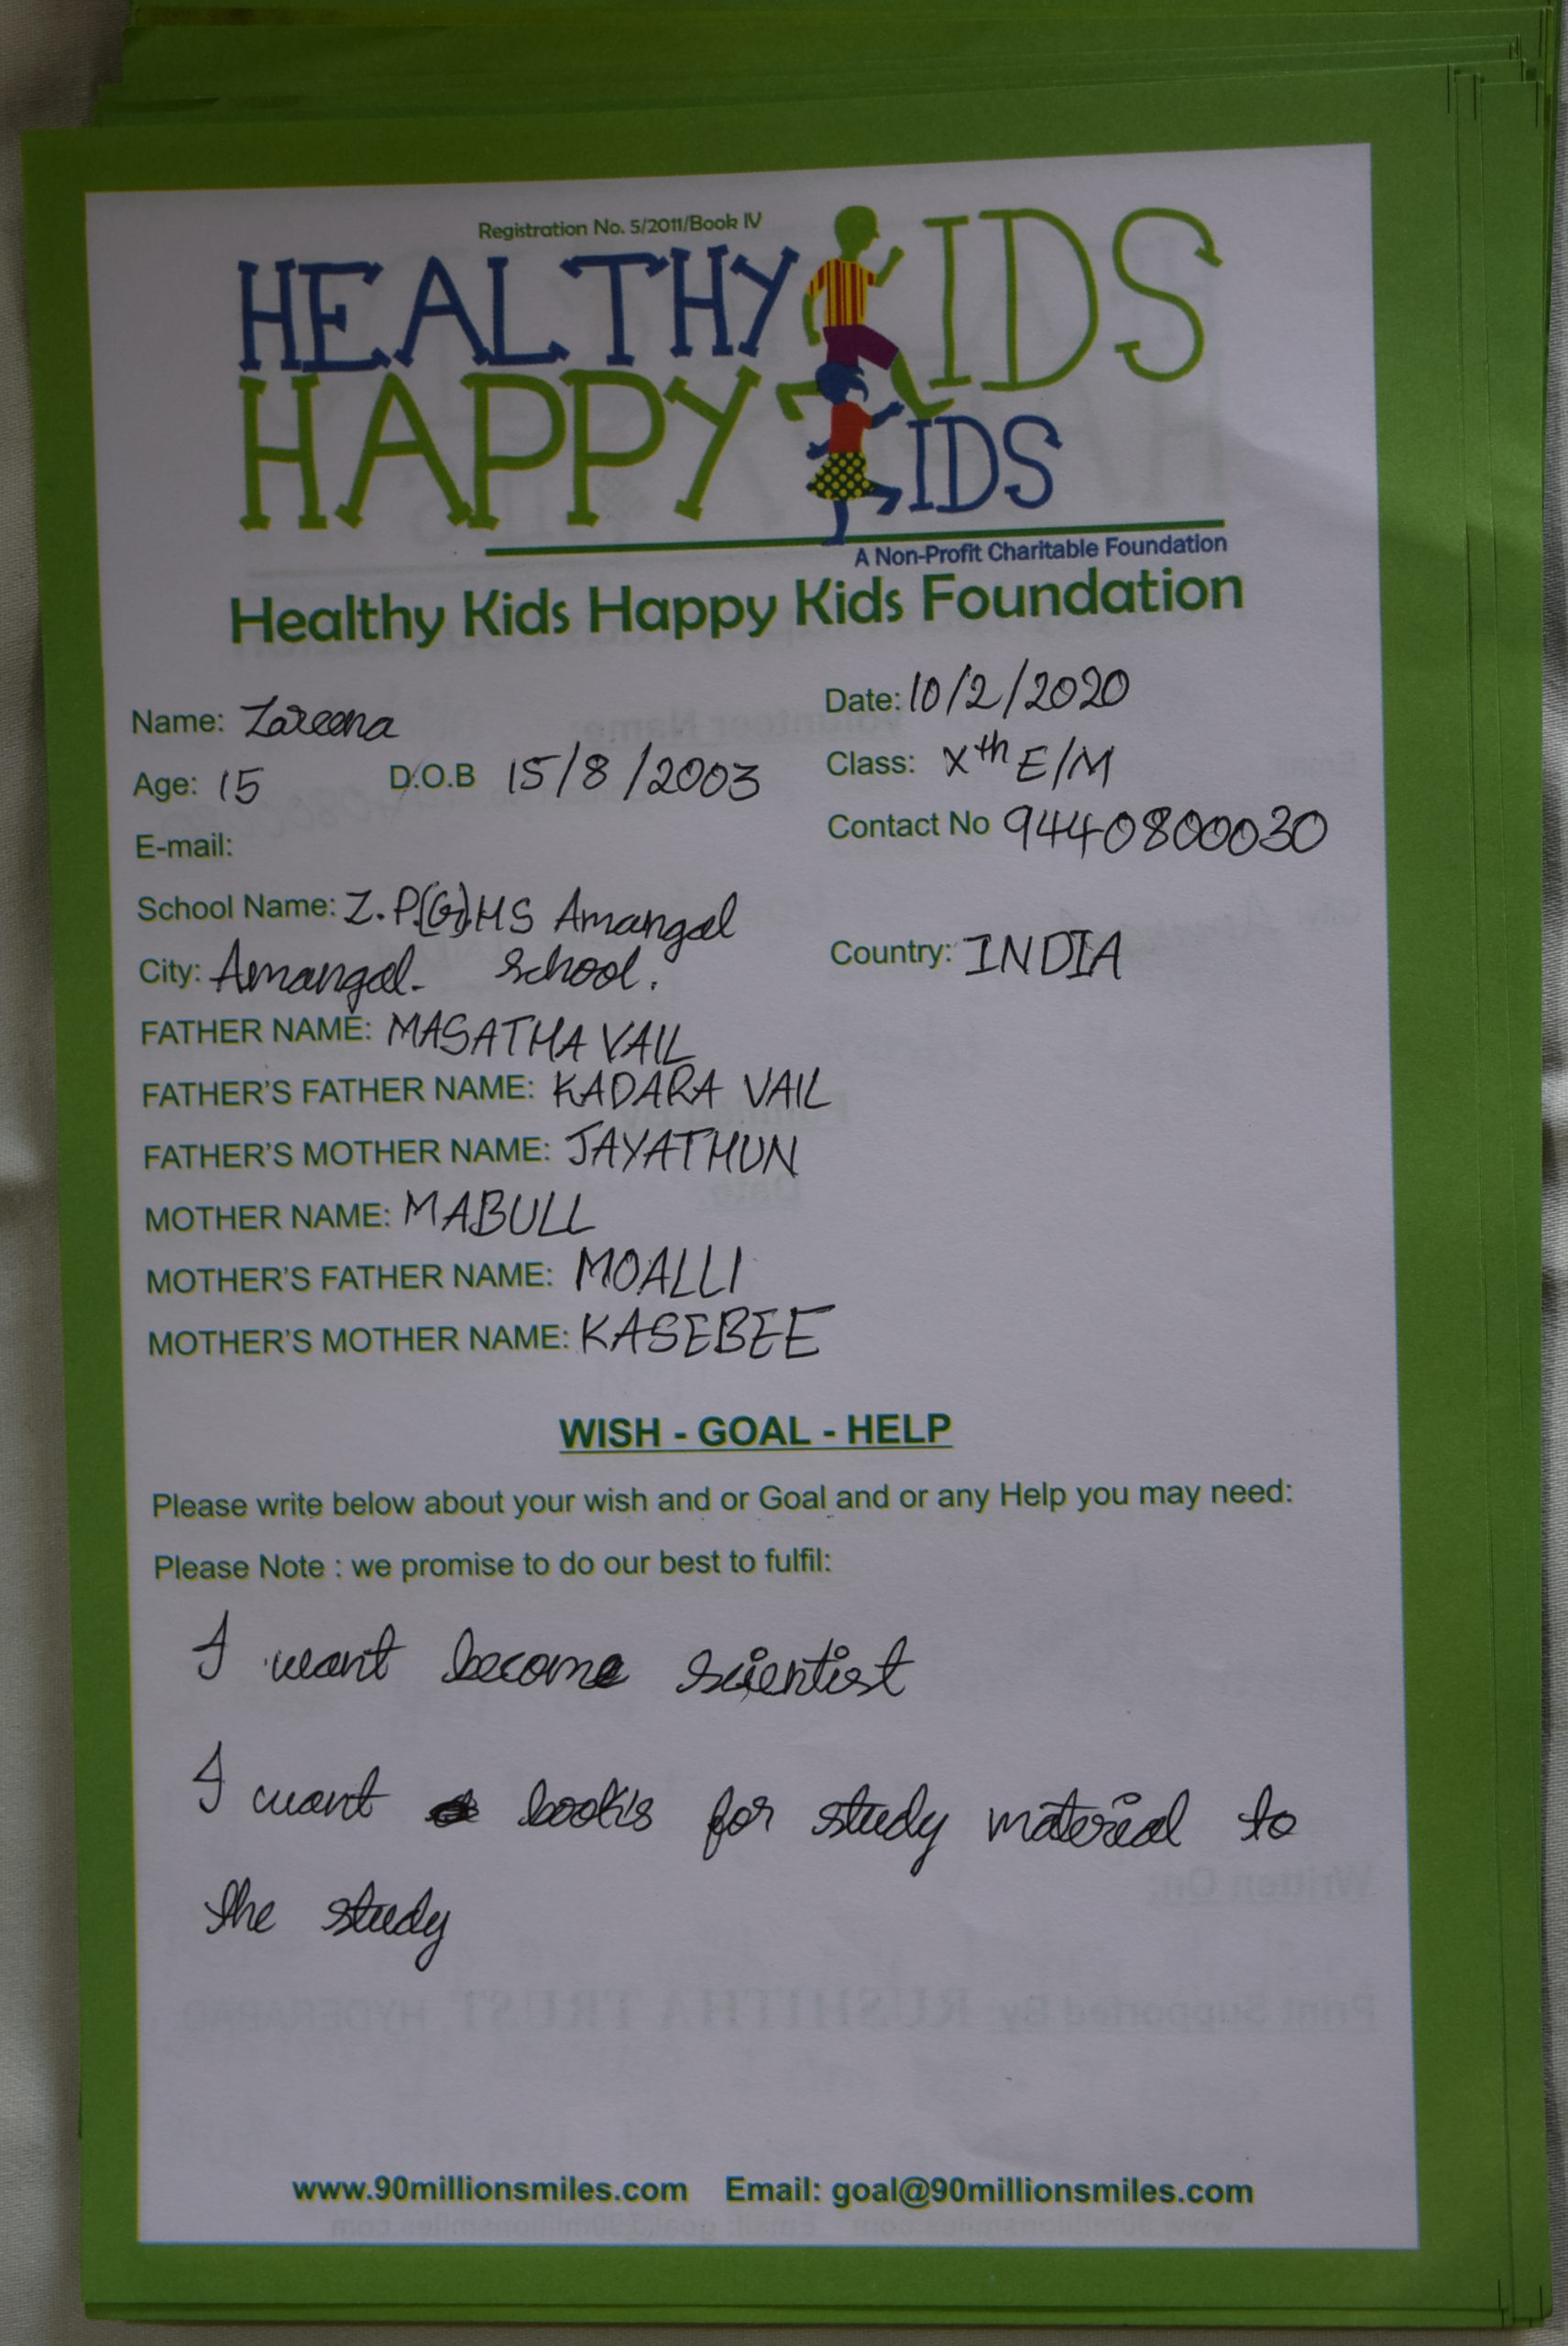 Registration No. 5/2011/Book IV
HEALTHY KIDS
HAPPY KIDS
A Non-Profit Charitable Foundation
Healthy Kids Happy Kids Foundation
Name: Zareena
Date: 10/2/2020
Age: 15 D.O.B 15/8/2003
Class: Xth E/M
E-mail:
Contact No 9440800030
School Name: Z.P.(G).HS Amangal
City: Amangal. School.
Country: INDIA
FATHER NAME: MASATHA VAIL
FATHER'S FATHER NAME: KADARA VAIL
FATHER'S MOTHER NAME: JAYATHUN
MOTHER NAME: MABULL
MOTHER'S FATHER NAME: MOALLI
MOTHER'S MOTHER NAME: KASEBEE
WISH - GOAL - HELP
Please write below about your wish and or Goal and or any Help you may need:
Please Note : we promise to do our best to fulfil:
I want become scientist
I want book's for study material to
the study
www.90millionsmiles.com Email: goal@90millionsmiles.com